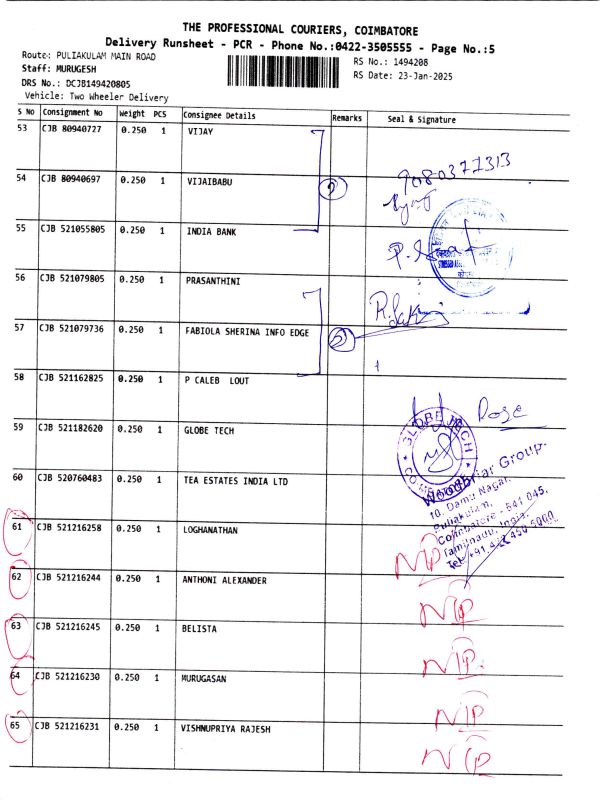 THE PROFESSIONAL COURIERS, COIMBATORE
Delivery Runsheet - PCR - Phone No.:0422-3505555 - Page No.:5
Route: PULIAKULAM MAIN ROAD
Staff: MURUGESH
DRS No.: DCJB149420805
Vehicle: Two Wheeler Delivery
RS No.: 1494208
RS Date: 23-Jan-2025
S No Consignment No Weight PCS Consignee Details Remarks Seal & Signature
53 CJB 80940727 0.250 1 VIJAY
9080377313
54 CJB 80940697 0.250 1 VIJAIBABU
55 CJB 521055805 0.250 1 INDIA BANK
56 CJB 521079805 0.250 1 PRASANTHINI
57 CJB 521079736 0.250 1 FABIOLA SHERINA INFO EDGE
58 CJB 521162825 0.250 1 P CALEB LOUT
59 CJB 521182620 0.250 1 GLOBE TECH
GLOBE TECH
COIMBATORE
60 CJB 520760483 0.250 1 TEA ESTATES INDIA LTD
Woodbriar Group.
10, Damu Nagar,
Puliakulam,
Coimbatore - 641 045.
Tamilnadu, India.
Tel: +91 422 450 5000
61 CJB 521216258 0.250 1 LOGHANATHAN NIP
62 CJB 521216244 0.250 1 ANTHONI ALEXANDER NIP
63 CJB 521216245 0.250 1 BELISTA NIP
64 CJB 521216230 0.250 1 MURUGASAN NIP
65 CJB 521216231 0.250 1 VISHNUPRIYA RAJESH NIP